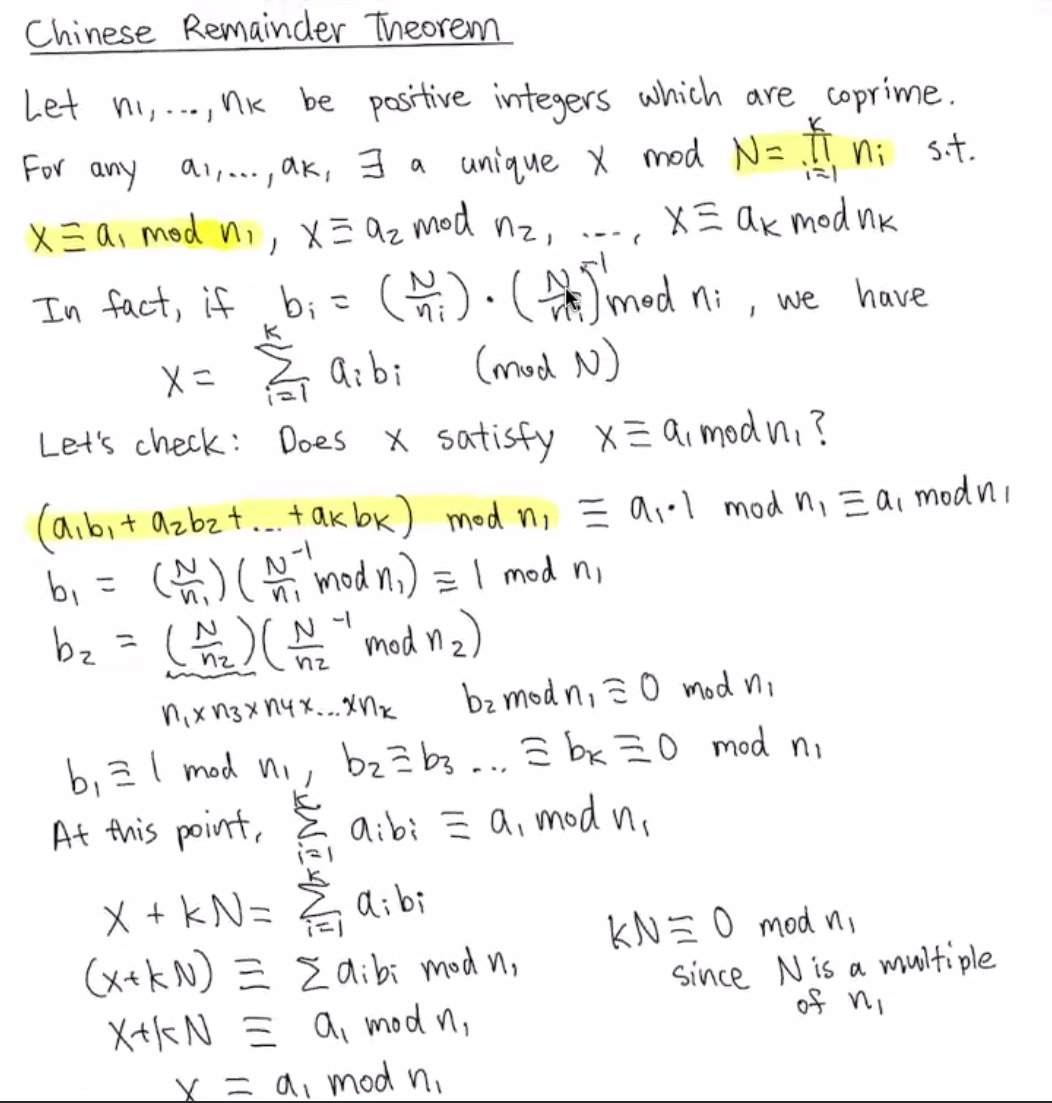 Chinese Remainder Theorem
Let n₁, ..., nₖ be positive integers which are coprime.
For any a₁, ..., aₖ, ∃ a unique X mod N = ∏ᵢ₌₁ᴷ nᵢ s.t.
X ≡ a₁ mod n₁, X ≡ a₂ mod n₂, ..., X ≡ aₖ mod nₖ
In fact, if bᵢ = (N/nᵢ) · (N/nᵢ)⁻¹ mod nᵢ, we have
X = ∑ᵢ₌₁ᴷ aᵢbᵢ (mod N)
Let's check: Does x satisfy x ≡ a₁ mod n₁?
(a₁b₁ + a₂b₂ + ... + aₖbₖ) mod n₁ ≡ a₁·1 mod n₁ ≡ a₁ mod n₁
b₁ = (N/n₁)(N/n₁⁻¹ mod n₁) ≡ 1 mod n₁
b₂ = (N/n₂)(N/n₂⁻¹ mod n₂)
n₁xn₃xn₄x...xnₖ b₂ mod n₁ ≡ 0 mod n₁
b₁ ≡ 1 mod n₁, b₂ ≡ b₃ ... ≡ bₖ ≡ 0 mod n₁
At this point, ∑ᵢ₌₁ᴷ aᵢbᵢ ≡ a₁ mod n₁
X + kN = ∑ᵢ₌₁ᴷ aᵢbᵢ
(x+kN) ≡ ∑aᵢbᵢ mod n₁
X+kN ≡ a₁ mod n₁
X ≡ a₁ mod n₁
kN ≡ 0 mod n₁
since N is a multiple
of n₁